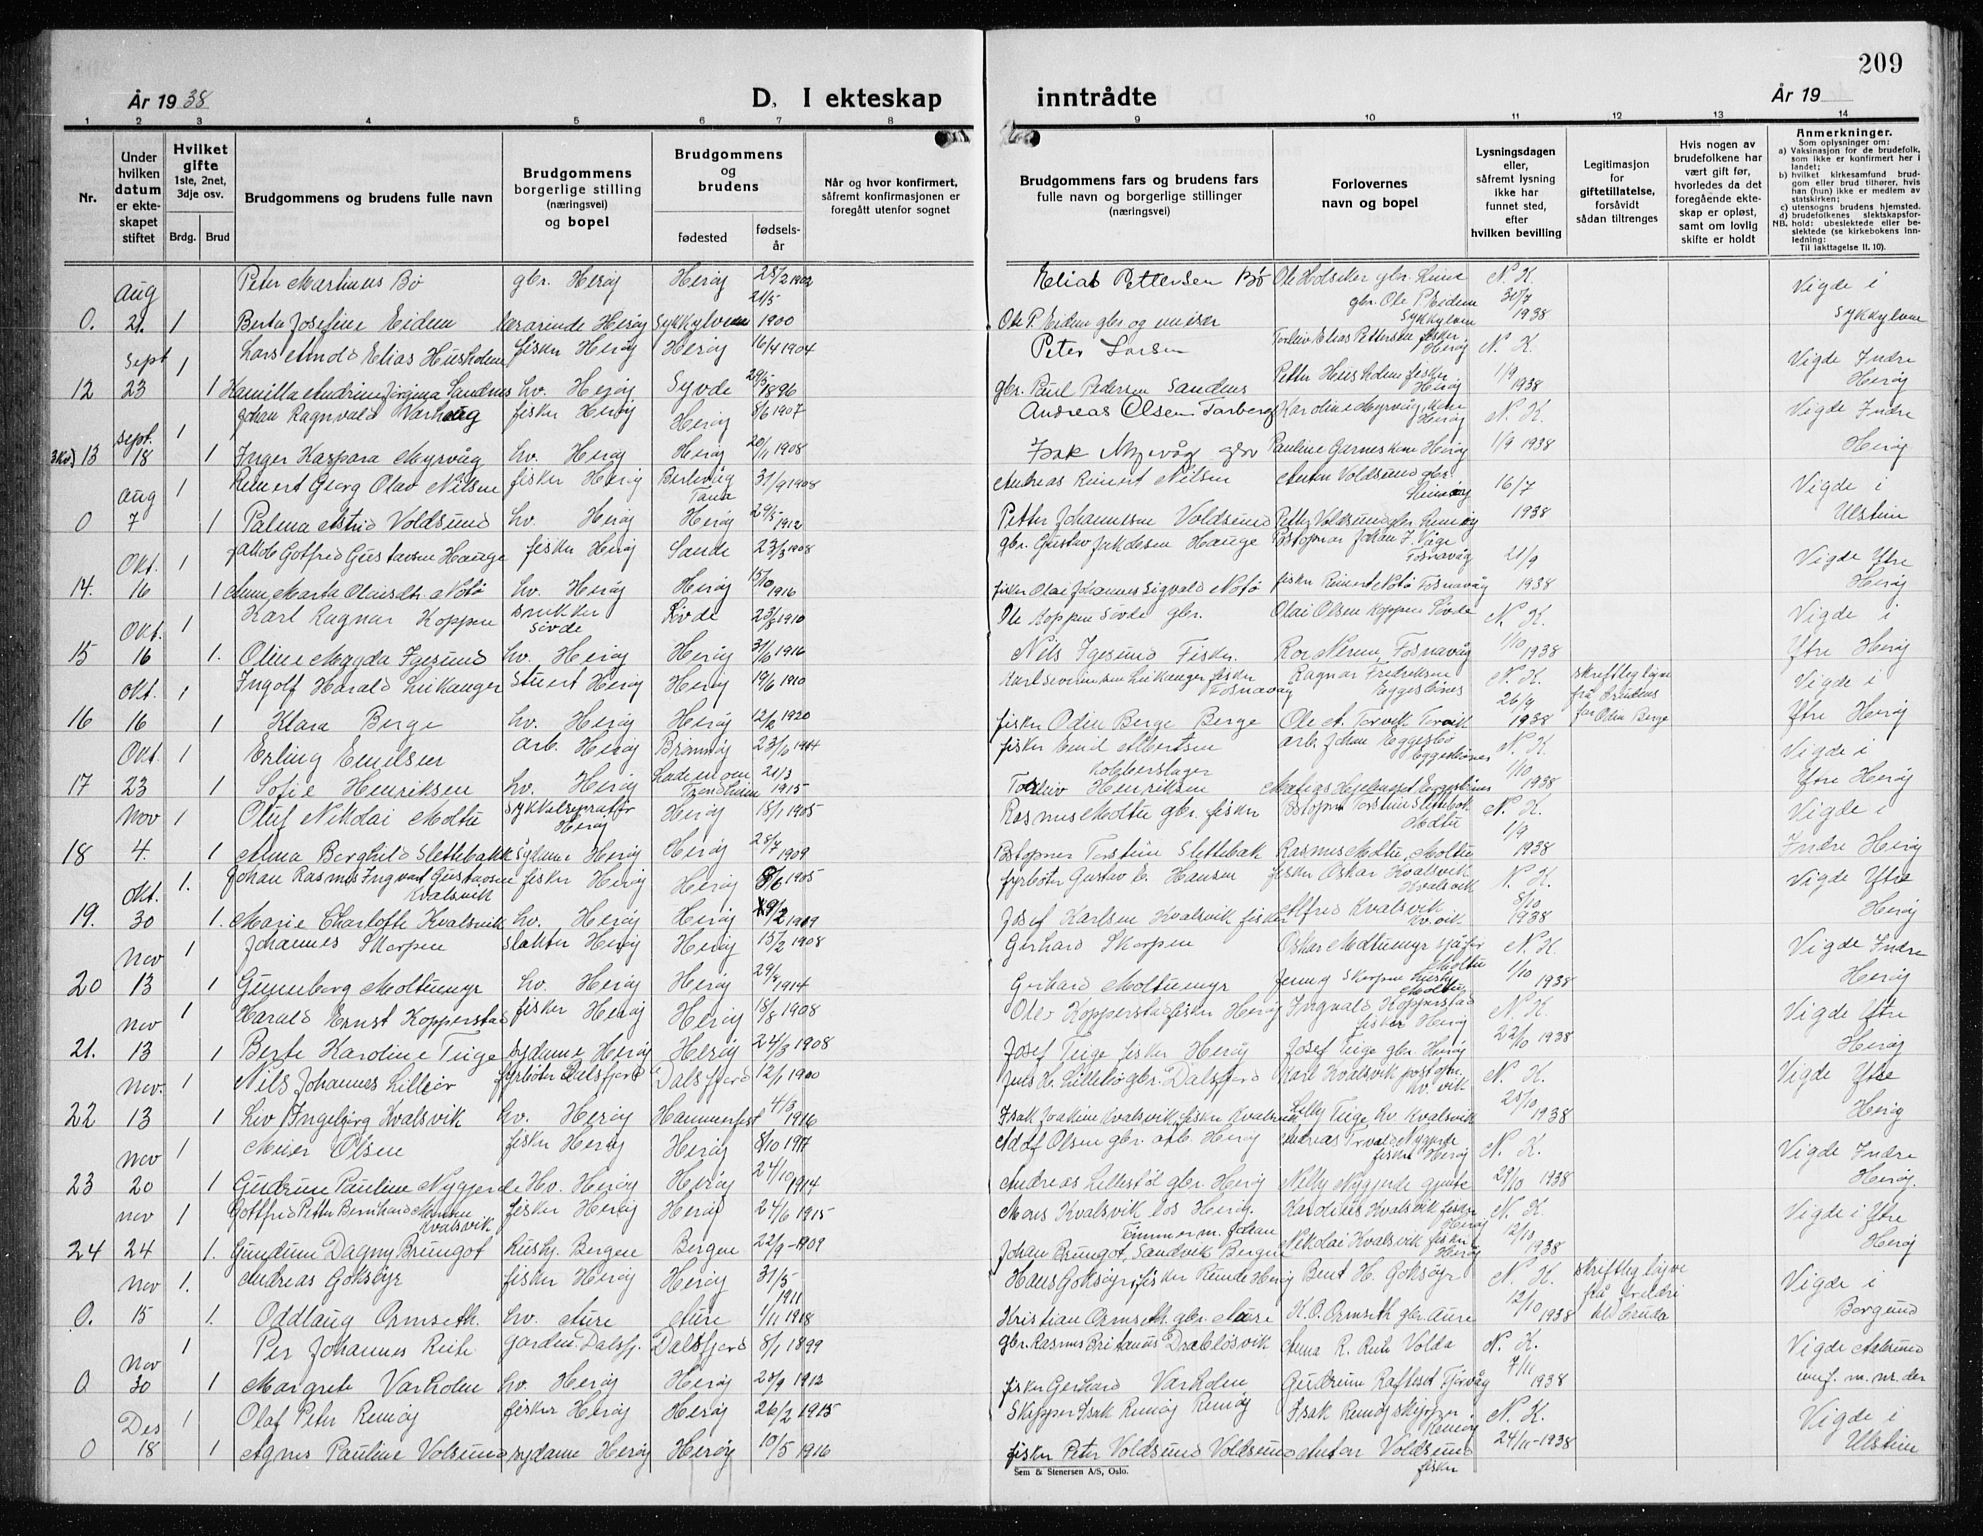 209
År 1938
D. I ekteskap
inntrådte
År 19
1 2 3 4 5 6 7 8 9 10 11 12 13 14
Nr.
Under hvilken datum er ekteskapet stiftet
Hvilket gifte 1ste, 2net, 3dje osv.
Brdg. Brud
Brudgommens og brudens fulle navn
Brudgommens borgerlige stilling (næringsvei) og bopel
Brudgommens og brudens
fødested
fødselsår
Når og hvor konfirmert, såfremt konfirmasjonen er foregått utenfor sognet
Brudgommens fars og brudens fars fulle navn og borgerlige stillinger (næringsvei)
Forlovernes navn og bopel
Lysningsdagen eller, såfremt lysning ikke har funnet sted, efter hvilken bevilling
Legitimasjon for giftetillatelse, forsåvidt sådan tiltrenges
Hvis nogen av brudefolkene har vært gift før, hvorledes da det foregående ekteskap er opløst, samt om lovlig skifte er holdt
Anmerkninger.
Som oplysninger om:
a) Vaksinasjon for de brudefolk, som ikke er konfirmert her i landet;
b) hvilket kirkesamfund brudgom eller brud tilhører, hvis han (hun) ikke er medlem av statskirken;
c) utensogns brudens hjemsted.
d) brudefolkenes slektskapsforhold: ubeslektede eller beslektede (se kirkebokens innledning: Til iakttagelse II. 10).
NB.
Aug 1 Peter Martinus Bö gbr. Herøy Herøy 28/2 1902 Elias Pettersen Bö N. K. Vigde i
0. 21. Berta Josefine Eidem Herøy Sykkylven 21/5 1900 Ole P. Eidem gbr og Sykkylven 30/7 1938 Sykkylven
Sept 1 Elias Husholm fisker Herøy Herøy 16/4 1904 Peter Larsen Torleiv Elias Pettersen fisker Herøy N. K. Vigde Indre
12 23 1 Kamilla Andrine Jörgina Sandnes hv. Herøy Syvde 29/5 1896 gbr. Paul Pedersen Sandnes Petter Husholm fisker Herøy 1/9 1938 Herøy
1 Johan Ragnvald Warhaug fisker Herøy Herøy 8/6 1907 Andreas Olsen Karoline Myrvåg Herøy N. K. Vigde Indre
13 sept. 18 1 Inger Kaspara Myrvåg hv. Herøy Herøy 20/11 1908 Isak Myrvåg gbr Pauline Garnes Herøy 1/9 1938 Herøy
aug 1 Reinert Georg Olav Nilsen fisker Herøy Berlevåg Tana 31/9 1908 Andreas Reinert Nilsen Anton Voldsund gbr. 16/7 Vigde i
0 7 1 Palma Astrid Voldsund hv. Herøy Herøy 29/5 1912 Petter Johannesen Voldsund Petter Voldsund gbr. Remøy 1938 Ulstein
Okt. 1 Jakob Gotfred Gustavsen Hauge fisker Herøy Sande 23/3 1908 gbr. Gustav Jakobsen Hauge Postopner Johan J. Våge Fosnavåg 21/9 Vigde Ytre
14. 16 1 Anne Marta Olaisdtr. Notø hv. Herøy Herøy 15/10 1916 fisker Olai Johannes Sigvald Notø fisker Reinert Notø Fosnavåg 1938 Herøy
Okt. 1 Karl Ragnar Koppen snekker Sövde Sövde 23/5 1910 Ole Koppen Sövde gbr. Olai Olsen Koppen Sövde N. K. Vigde i
15 16 1. Oline Magda Igesund hv. Herøy Herøy 31/6 1916 Nils Igesund Fisker. Fosnavåg 1/10 1938 Ytre Herøy
Okt. 1 Ingolf Harald Leikanger Stuert Herøy Herøy 19/6 1910 Leikanger fisker Fosnavåg Ragnar Fredriksen Eggesbönes N. K. Vigde i
16 16 1 Klara Berge hv. Herøy Herøy 12/2 1920 fisker Odin Berge Berge Ole A. Torvik Torvik 26/9 1938 skriftleg løyve frå brudens far Odin Berge Ytre Herøy
Okt. 1 Erling Emilsen arb. Herøy Brönnöy 23/6 1914 fisker Emil Albertsen arb. Johan Eggesbö Eggesbönes N. K. Vigde i
17 23 1 Sofie Henriksen hv. Herøy Lademoen Trondheim 21/3 1915 Torleiv Henriksen Eggesbönes 1/10 1938 Ytre Herøy
Nov 1 Oluf Nikolai Moltu Sykkelreparatör Herøy Herøy 18/1 1905 Rasmus Moltu gbr. fisker Postopner Torstein Slettebak Moltu N. K. Vigde i
18 4. 1 Anna Borghild Slettebakk sydame Herøy Herøy 28/7 1909 Postopner Torstein Slettebak Rasmus Moltu, Moltu 1/9 1938 Indre Herøy
Okt. 1. Johan Rasmus Ingvart Gustavsen Kvalsvik fisker Herøy Herøy 8/6 1905 fyrböter Gustav Hansen fisker Oskar Kvalsvik Kvalsvik N. K. Vigde Ytre
19. 30 1. Marie Charlotte Kvalsvik hv. Herøy Herøy 19/2 1909 Josef Karlsen Kvalsvik fisker Alfred Kvalsvik Kv.vik 8/10 1938 Herøy
Nov 1 Johannes Skorpen slakter Herøy Herøy 15/2 1908 Gerhard Skorpen Oskar Moltumyr sjåfør Moltu N. K. Vigde Indre
20 13 1 Gunnborg Moltumyr hv. Herøy Herøy 29/4 1914 Gerhard Moltumyr Jenny Skorpen Moltu 1/10 1938 Herøy
nov 1 Harald Ernst Kopperstad fisker Herøy Herøy 18/8 1908 Olev Kopperstad fisker Herøy Ingvald Kopperstad fisker Herøy N. K. Vigde Ytre
21. 13 1 Berte Karoline Teige sydame Herøy Herøy 24/3 1908 Josef Teige fisker Herøy Josef Teige gbr. Herøy 22/10 1938 Herøy
nov. 1 Nils Johannes Lillebö fyrböter Dalsfjord Dalsfjord 12/1 1900 Jens Lillebö gbr. Dalsfjord Karl Kvalsvik postopn. Kv.vik N. K. Vigde Ytre
22 13 1 Liv Ingebjörg Kvalsvik hv. Herøy Hammerfest 4/3 1916 Isak Joakim Kvalsvik, fisker Kvalsvik Lilly Teige hv. Kvalsvik 25/10 1938 Herøy
nov 1 Meier Olsen fisker Herøy Herøy 8/10 1917 Adolf Olsen gbr. arb. Herøy Andreas Nygjerde fisker Herøy N. K. Vigde Indre
23 20 1 Gudrun Pauline Nygjerde Hv. Herøy Herøy 24/10 1914 Andreas Lillestöl gbr. Herøy Nelly Nygjerde 29/10 1938 Herøy.
nov 1 Gottfred Petter Bernhard Monsen Kvalsvik fisker Herøy Herøy 24/6 1915 Mons Kvalsvik los Herøy. Karolines Kvalsvik fisker Herøy N. K. Vigde i Ytre
24 24 1. Gundine Dagny Brungot hush. Bergen Bergen 22/9 - 1909 Timmerm. Johan Johan Brungot, Sandvik Bergen Nikolai Kvalsvik fisker Herøy 12/10 1938 Herøy
nov 1. Andreas Goksöyr fisker Herøy Herøy 31/5 1911 Hans Goksöyr, fisker Runde Herøy Bent H. Goksöyr N. K. skriftleg løyve frå foreldri Vigde i
0. 15 1. Oddlaug Ormseth. hv. Aure Aure 1/11 1918 Kristian Ormseth gbr. Aure K. O. Ormseth gbr. Aure 12/10 1938 til bruda Borgund
nov 1 Per Johannes Reite Dalsfj. Dalsfjord 8/1 1899 gbr. Rasmus Dravlösvik Anna R. Reite Volda N. K. Vigde Aalesund
0 30 1 Margrete Varholm hv. Herøy Herøy 28/9 1912 fisker Gerhard Varholm Gudrun Raftset Tjörvåg 7/11 1938
Des 1 Olaf Peter Remøy fisker Herøy Herøy 26/2 1915 Skipper Isak Remøy Remøy Isak Remøy skipper Remøy N. K. Vigde i
0 18 1 Agnes Pauline Volsund sydame Herøy Herøy 10/5 1916 fisker Peter Voldsund Voldsund Anton Voldsund fisker 24/11 - 1938 Ulstein
Sem & Stenersen A/S, Oslo.